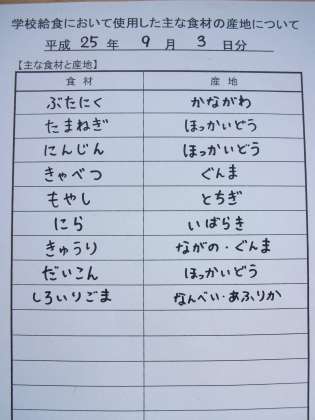 学校給食において使用した主な食材の産地について
平成 25 年 9 月 3 日分
【主な食材と産地】
食材 産地
ぶたにく かながわ
たまねぎ ほっかいどう
にんじん ほっかいどう
きゃべつ ぐんま
もやし とちぎ
にら いばらき
きゅうり ながの・ぐんま
だいこん ほっかいどう
しろいりごま なんべい・あふりか